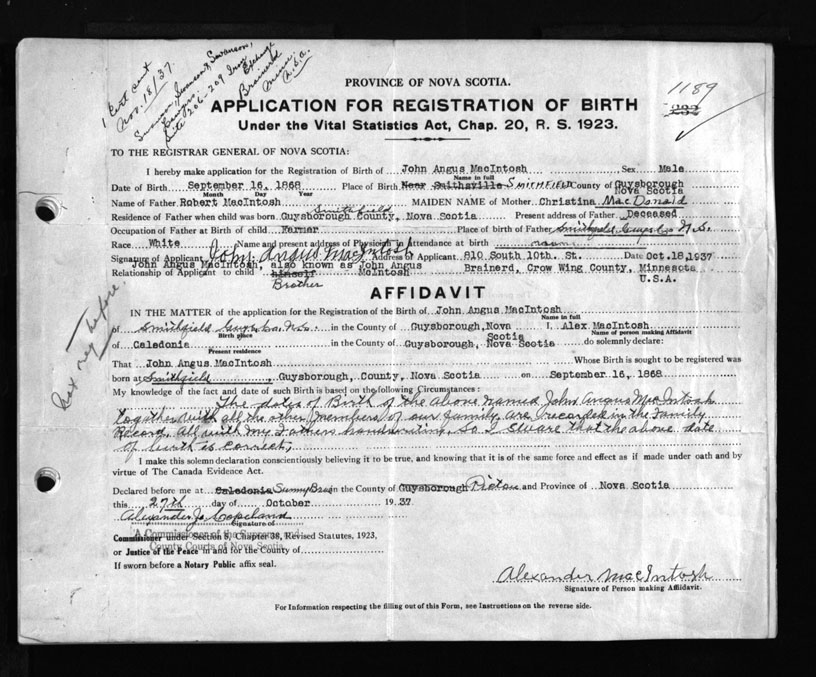 1 Cert sent
Nov. 18/37.
Swanson, Swanson & Swanson,
Suite 206-209 Iron Exchange
Brainerd
Minn.
U.S.A.
PROVINCE OF NOVA SCOTIA.
1189
232
APPLICATION FOR REGISTRATION OF BIRTH
Under the Vital Statistics Act, Chap. 20, R. S. 1923.
TO THE REGISTRAR GENERAL OF NOVA SCOTIA:
I hereby make application for the Registration of Birth of John Angus MacIntosh Sex Male
Name in full
Date of Birth September 16, 1868 Place of Birth Near Smithsville SMITHFIELD County of Guysborough Nova Scotia
Month Day Year
Name of Father Robert MacIntosh MAIDEN NAME of Mother Christina MacDonald
Residence of Father when child was born Smithfield Guysborough County, Nova Scotia Present address of Father Deceased
Occupation of Father at Birth of child Farmer Place of birth of Father Smithfield Guys Co N.S.
Race White Name and present address of Physician in Attendance at birth
Signature of Applicant John Angus MacIntosh Address of Applicant 810 South 10th. St. Date Oct.18,1937
John Angus MacIntosh, also known as John Angus McIntosh Brainerd, Crow Wing County, Minnesota U.S.A.
Relationship of Applicant to child himself Brother
AFFIDAVIT
IN THE MATTER of the application for the Registration of the Birth of John Angus MacIntosh
Name in full
of Smithfield Guys Co. N.S. in the County of Guysborough, Nova Scotia I, Alex MacIntosh
Birth place Name of person making Affidavit
of Caledonia in the County of Guysborough, Nova Scotia do solemnly declare:
Present residence
That John Angus MacIntosh Whose Birth is sought to be registered was
born at Smithfield, Guysborough, County, Nova Scotia on September 16, 1868
My knowledge of the fact and date of such Birth is based on the following Circumstances:
The dates of Birth of the above named John Angus MacIntosh
together with all the other members of our family are recorded in the Family
Record, all with my Fathers handwriting, So I Sware that the above date
of birth is correct,
I make this solemn declaration conscientiously believing it to be true, and knowing that it is of the same force and effect as if made under oath and by
virtue of The Canada Evidence Act.
Declared before me at Caledonia Sunny Brae in the County of Guysborough Pictou and Province of Nova Scotia
this 27th day of October 1937
Alexander J. Copeland
Signature of
A Commissioner of the Supreme and
Commissioner under Section 8, Chapter 38, Revised Statutes, 1923,
County Courts of Nova Scotia
or Justice of the Peace in and for the County of
If sworn before a Notary Public affix seal.
Alexander MacIntosh
Signature of Person making Affidavit.
For Information respecting the filling out of this Form, see Instructions on the reverse side.
not reg before.